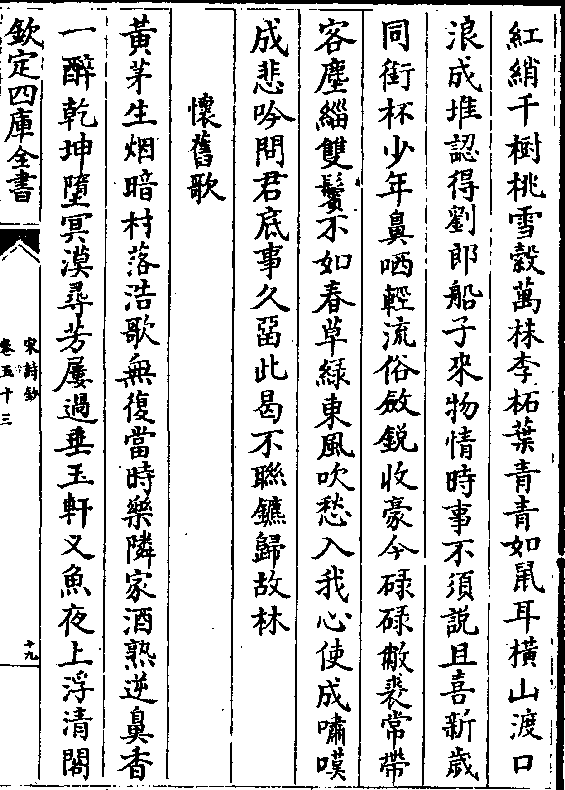 紅綃千樹桃雪縠萬株李柘葉青青如鼠耳橫山渡口
浪成堆認得劉郎船子來物情時事不須説且喜新歲
同銜杯少年鼻哂輕流俗斂鋭收豪今碌碌敝裘常帶
客塵緇雙鬢不如春草緑東風吹愁入我心使成嘯嘆
成悲吟問君底事久畱此曷不聯鑣歸故林
懷舊歌
黃茅生烟暗村落浩歌無復當時樂隣家酒熟逆鼻香
一醉乾坤墮冥漠尋芳屢過垂玉軒叉魚夜上浮清閣
欽定四庫全書
宋詩鈔
卷五十三
十九